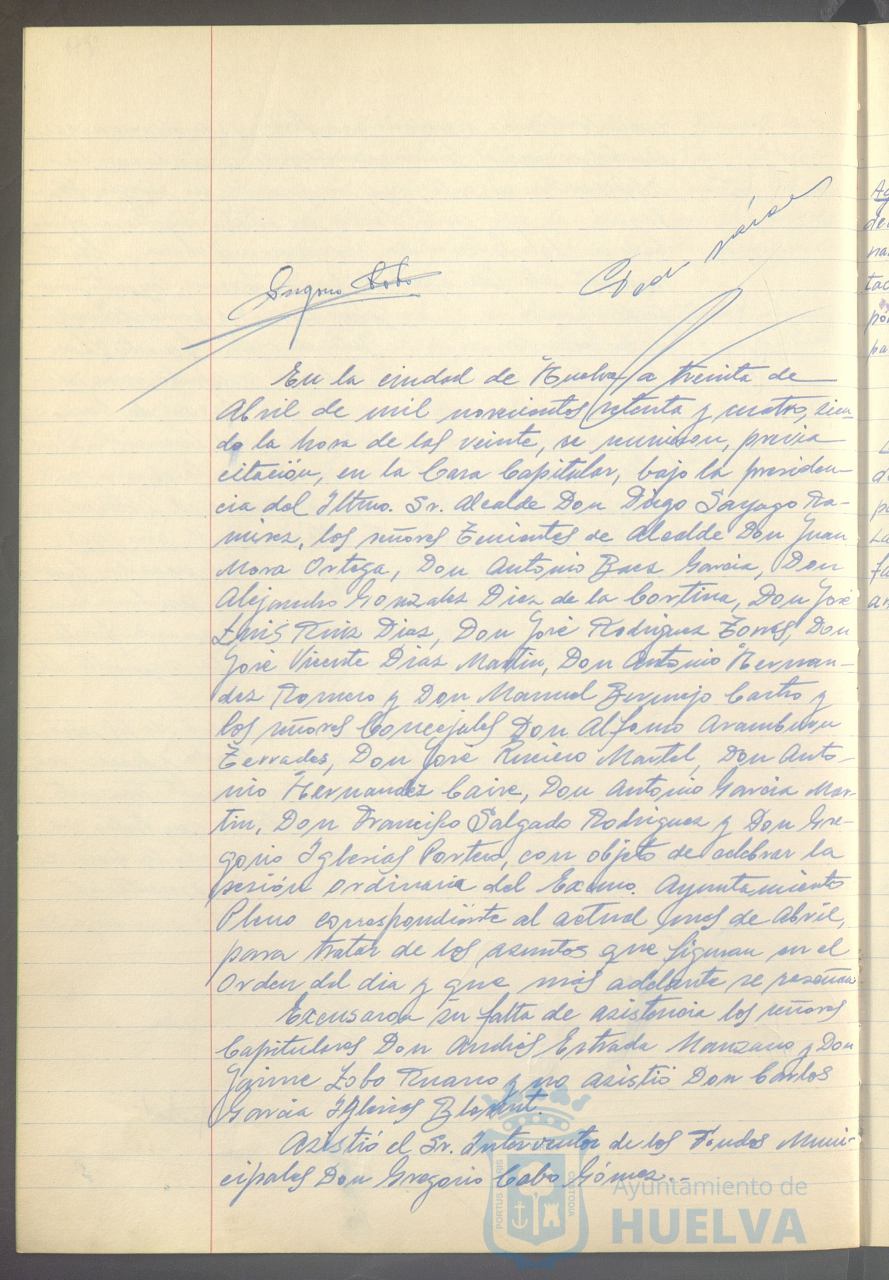 En la ciudad de Huelva a treinta de
Abril de mil novecientos setenta y cuatro, sien-
do la hora de las veinte, se reunieron, previa
citación, en la Casa Capitular, bajo la presiden-
cia del Iltmo. Sr. Alcalde Don Diego Sayago Ra-
mirez, los señores Tenientes de Alcalde Don Juan
Mora Ortega, Don Antonio Baez Garcia, Don
Alejandro Gonzalez Diez de la Cortina, Don José
Luis Ruiz Diaz, Don José Rodriguez Torres, Don
José Vicente Diaz Martin, Don Antonio Hernan-
dez Romero y Don Manuel Bermejo Castro y
los señores Concejales Don Alfonso Aramburu
Terrades, Don José Ruciero Martel, Don Anto-
nio Hernandez Caire, Don Antonio Garcia Mar-
tin, Don Francisco Salgado Rodriguez y Don Gre-
gorio Iglesias Portero, con objeto de celebrar la
sesión ordinaria del Excmo. Ayuntamiento
Pleno correspondiente al actual mes de Abril,
para tratar de los asuntos que figuran en el
Orden del dia y que más adelante se reseñan
Excusaron su falta de asistencia los señores
Capitulares Don Andrés Estrada Manzano y Don
Jaime Lobo Ruano y no asistió Don Carlos
Garcia Iglesias
Asistió el Sr. Interventor de los Fondos Muni-
cipales Don Gregorio Cabo Gómez.-
PORTUS MARIS
CUSTODIA
Ayuntamiento de
HUELVA